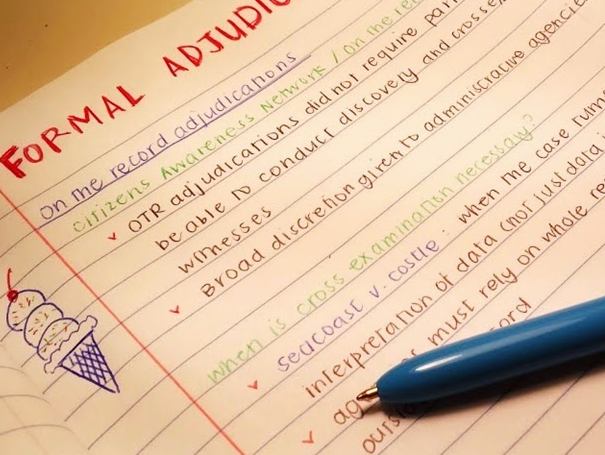 FORMAL ADJUDIC
on the record adjudications
citizens Awareness Network / on the rec
OTR adjudications did not require par
be able to conduct discovery and cross ex
witnesses
Broad discretion given to administrative agencie
when is cross examination necessary?
seacoast v. costle : when the case turn
interpretation of data (not just data
ag must rely on whole re
outsi ord